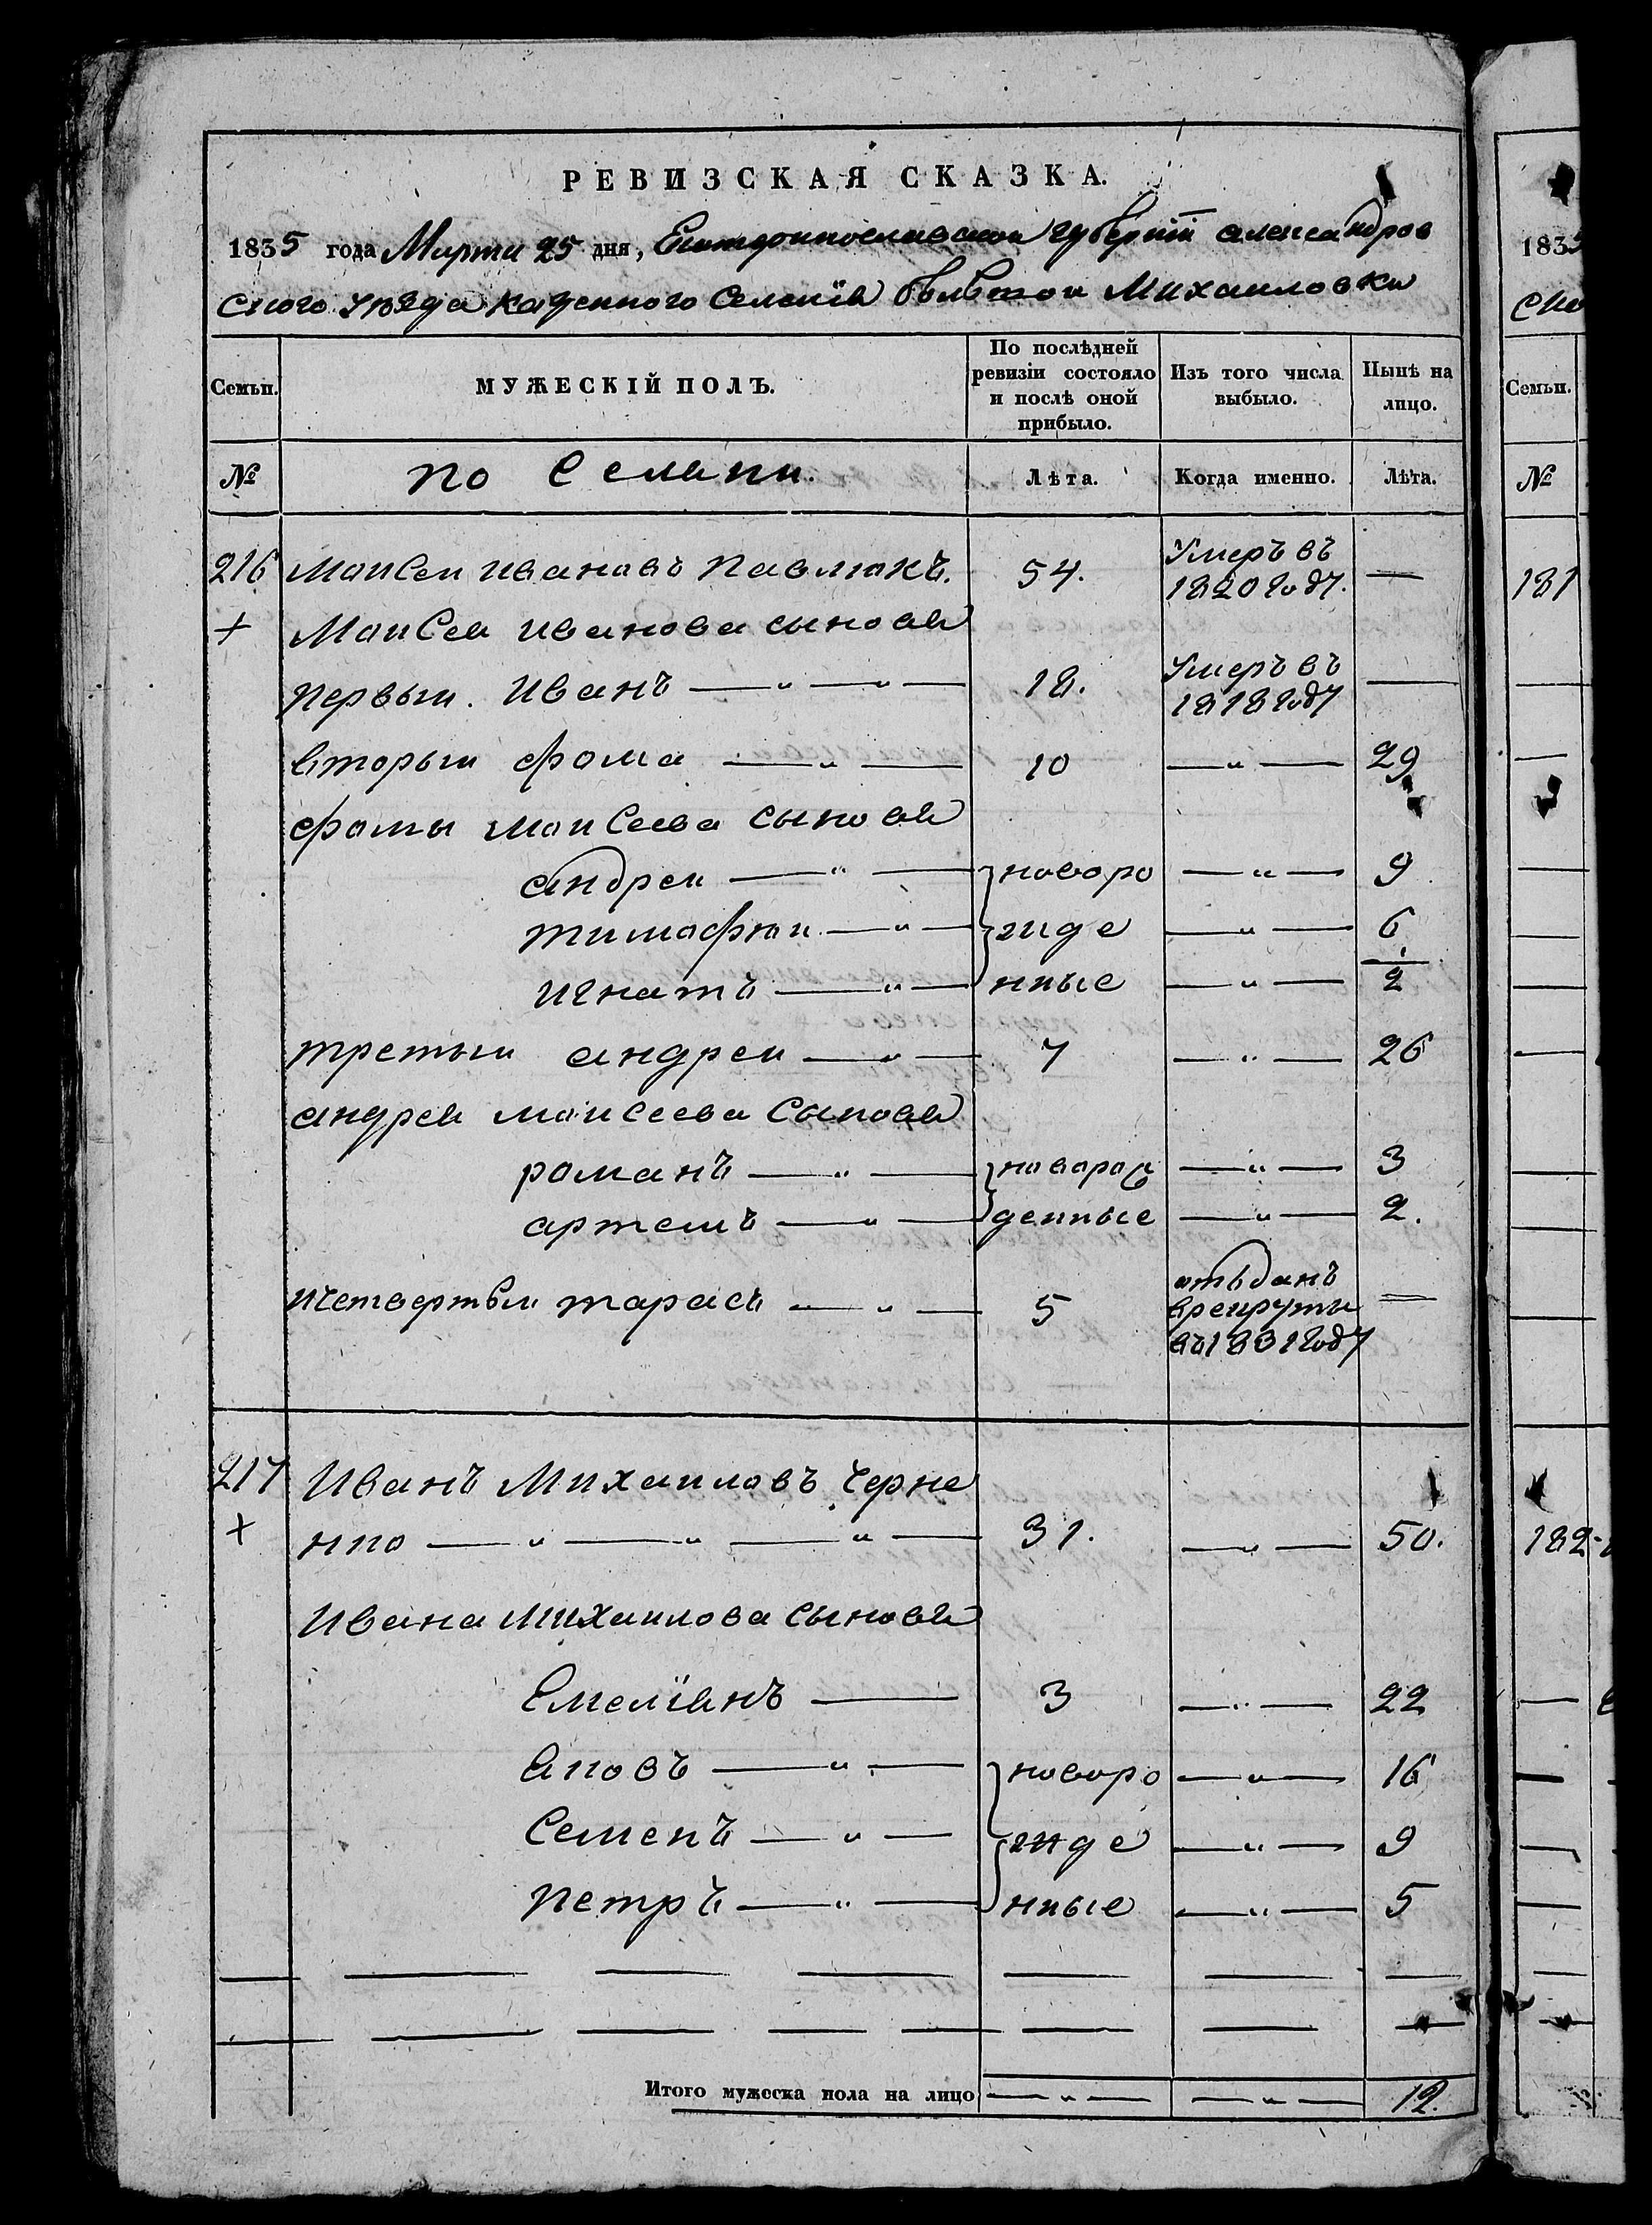 РЕВИЗСКАЯ СКАЗКА.
1835 года Марта 25 дня, Екатеринославской губернїи александров
ского уѣзда казенного Селенїя большой Михаиловки
Семьи. МУЖЕСКІЙ ПОЛЪ. По послѣдней ревизіи состояло и послѣ оной прибыло. Изъ того числа выбыло. Нынѣ на лицо.
№ Лѣта. Когда именно. Лѣта.
216 Моисеи ивановъ павлюкъ. 54. Умеръ въ 1820 году. —
+ Моисея иванова сыновя
первыи. иванъ — " — " — 18. Умеръ въ 1818 году —
вторыи фома — " — 10 — " — 29
фомы моисеева сыновя
андреи — " — новоро — " — 9
тимофеи — " — жде — " — 6
игнатъ — " — нные — " — 2
третыи андреи — " — 7 — " — 26
андрея моисеева сыновя
романъ — " — новорож — " — 3
артемъ — " — денные — " — 2.
четвертыи тарасъ — " — 5 отъданъ врекруты въ 1831 году —
217 Иванъ Михаиловъ Черне
+ нко — " — " — " — 31. — " — 50.
Ивана михаилова сыновя
Емелїянъ — 3 — " — 22
яковъ — " — новоро — " — 16
Семенъ — " — жде — " — 9
петръ — " — нные — " — 5
Итого мужеска пола на лицо — " — — " — 12.
1835
Семьи.
№
181
182